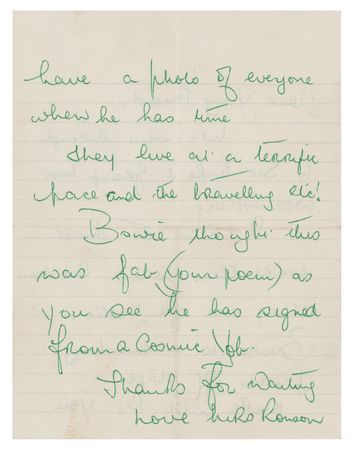 have a photo of everyone
when he has time
They live at a terrific
pace and the travelling etc!
Bowie thought this
was fab (your poem) as
you see he has signed
from a Cosmic Yob.
Thanks for waiting
Love Mrs Ronson